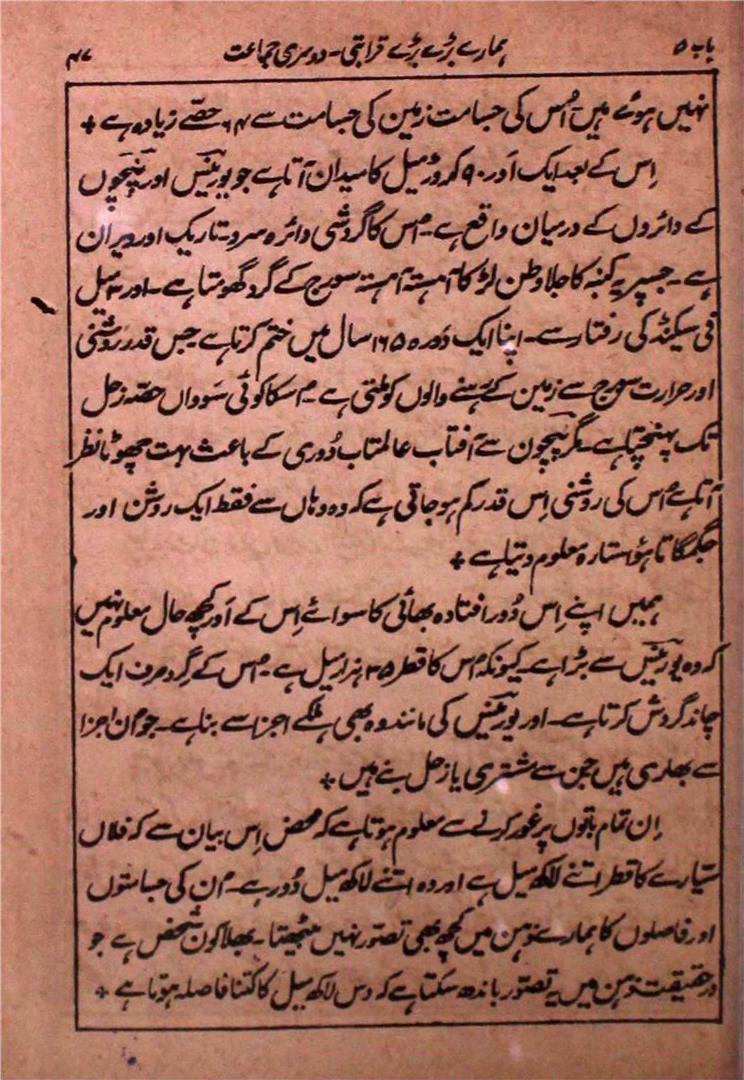 باب ۵ ہمارے بڑے بڑے قرابتی۔ دوسری جماعت ۴۷
نہیں ہوئے ہیں۔ اُس کی جسامت زمین کی جسامت سے ۶۴ حصّے زیادہ ہے +
اِس کے بعد ایک اَور ۹۰ کروڑ میل کا میدان آتا ہے جو یورینس اور نیپچون
کے دائروں کے درمیان واقع ہے۔ اس کا گردشی دائرہ سرد۔ تاریک اور ویران
ہے۔ جسپر یہ کنبہ کا جلاوطن لڑکا آہستہ آہستہ سورج کے گرد گھومتا ہے۔ اور ۳ میل
فی سیکنڈ کی رفتار سے۔ اپنا ایک دَورہ ۱۶۵ سال میں ختم کرتا ہے جس قدر روشنی
اور حرارت سورج سے زمین کے رہنے والوں کو ملتی ہے۔ اسکا کوئی سَوواں حصّہ زحل
تک پہنچتا ہے۔ مگر نیپچون سے آفتاب عالمتاب دُوری کے باعث بہت چھوٹا نظر
آتا ہے اُس کی روشنی اِس قدر کم ہو جاتی ہے کہ وہ وہاں سے فقط ایک روشن اور
جگمگاتا ہؤا ستارہ معلوم دیتا ہے +
ہمیں اپنے اِس دُور افتادہ بھائی کا سوائے اِس کے اَور کچھ حال معلوم نہیں
کہ وہ یورینس سے بڑا ہے۔ کیونکہ اُس کا قطر ۳۵ ہزار میل ہے۔ اُس کے گِرد صرف ایک
چاند گردش کرتا ہے۔ اور یورینس کی مانند وہ بھی ہلکے اجزا سے بنا ہے۔ جو اُن اجزا
سے بھاری ہیں جن سے مشتری یا زحل بنے ہیں +
اِن تمام باتوں پر غور کرنے سے معلوم ہوتا ہے کہ محض اِس بیان سے کہ فلاں
سیّارے کا قطر اتنے لاکھ میل ہے اور وہ اتنے لاکھ میل دُور ہے۔ اُن کی جسامتوں
اور فاصلوں کا ہمارے ذہن میں کچھ بھی تصوّر نہیں بیٹھتا۔ بھلا کون شخص ہے جو
درحقیقت ذہن میں یہ تصوّر باندھ سکتا ہے کہ دس لاکھ میل کا کتنا فاصلہ ہوتا ہے +